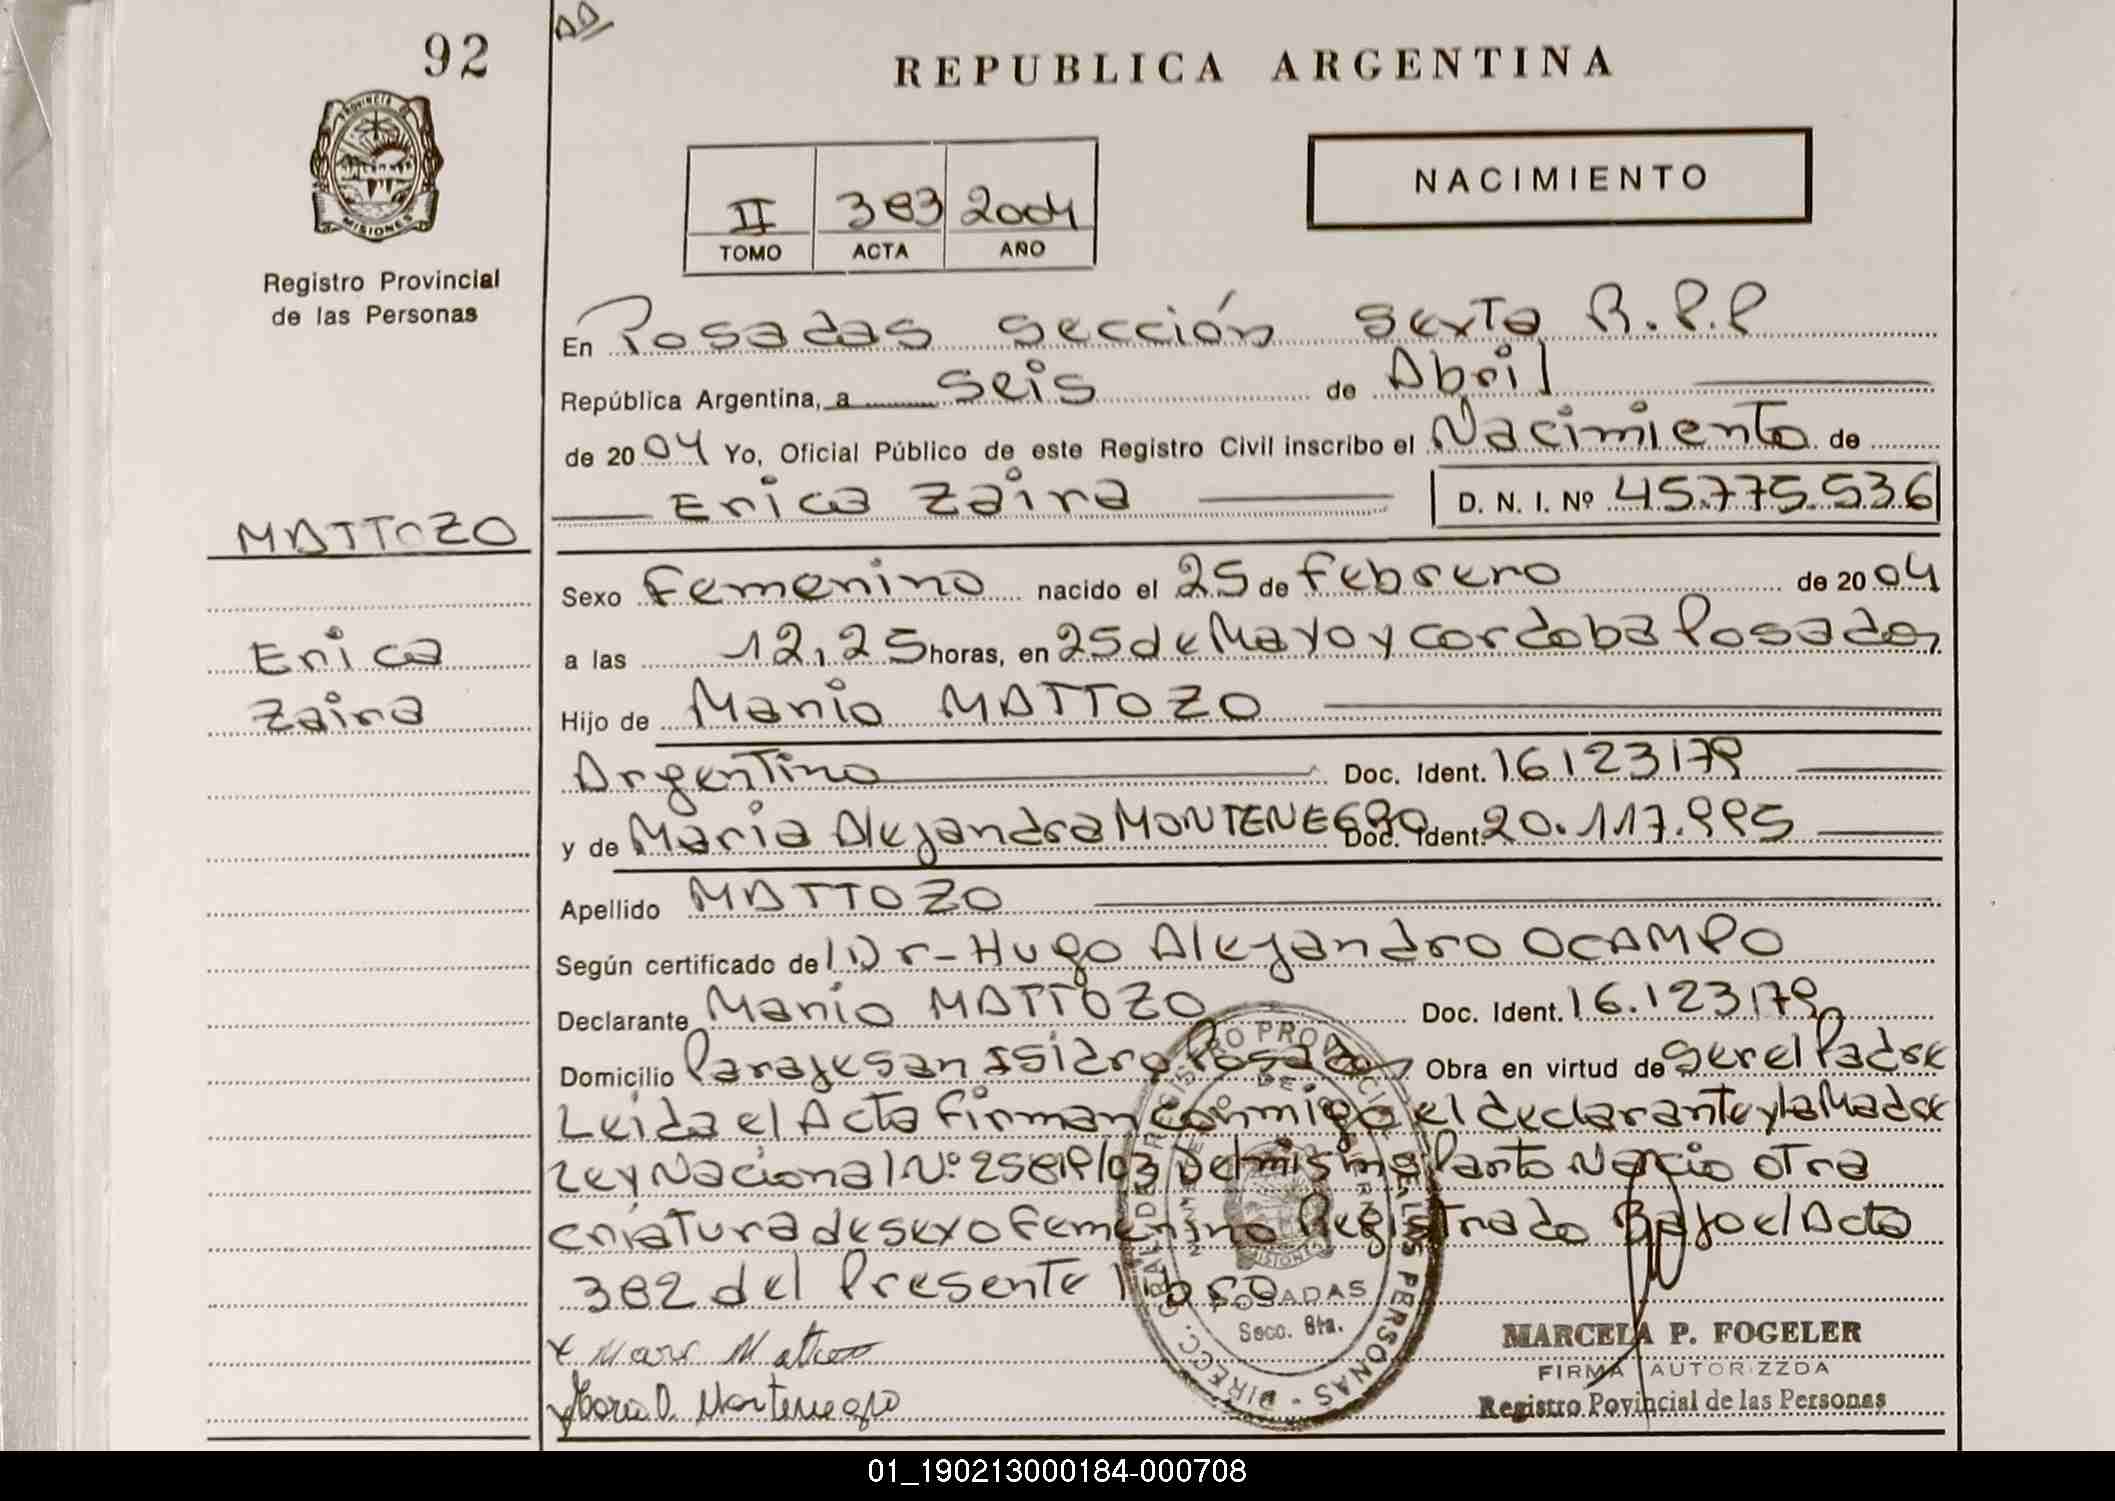 92
REPUBLICA ARGENTINA
PROVINCIA DE
MISIONES
Registro Provincial
de las Personas
II 383 2004
TOMO ACTA AÑO
NACIMIENTO
En Posadas sección sexta R.P.P
República Argentina, a seis de Abril
de 2004 Yo, Oficial Público de este Registro Civil inscribo el Nacimiento de
Erica Zaira D. N. I. Nº 45.775.536
MATTOZO
Erica
Zaira
Sexo Femenino nacido el 25 de Febrero de 2004
a las 12,25 horas, en 25 de Mayo y Cordoba Posadas
Hijo de Mario MATTOZO
Argentino Doc. Ident. 16.123.179
y de Maria Alejandra MONTENEGRO Doc. Ident. 20.117.995
Apellido MATTOZO
Según certificado de Dr-Hugo Alejandro OCAMPO
Declarante Mario MATTOZO Doc. Ident. 16.123.179
Domicilio Paraje San Isidro Posadas Obra en virtud de ser el Padre
Leida el Acta Firman conmigo el declarante y la Madre
Ley Nacional Nº 25819/03 Del mismo Parto Nacio otra
criatura de sexo femenino Registrado Bajo el Acta
382 del Presente libro
x Mario Mattozo
x Maria A. Montenegro
POSADAS
Secc. 6ta.
MARCELA P. FOGELER
FIRMA AUTORIZZDA
Registro Povincial de las Personas
01_190213000184-000708